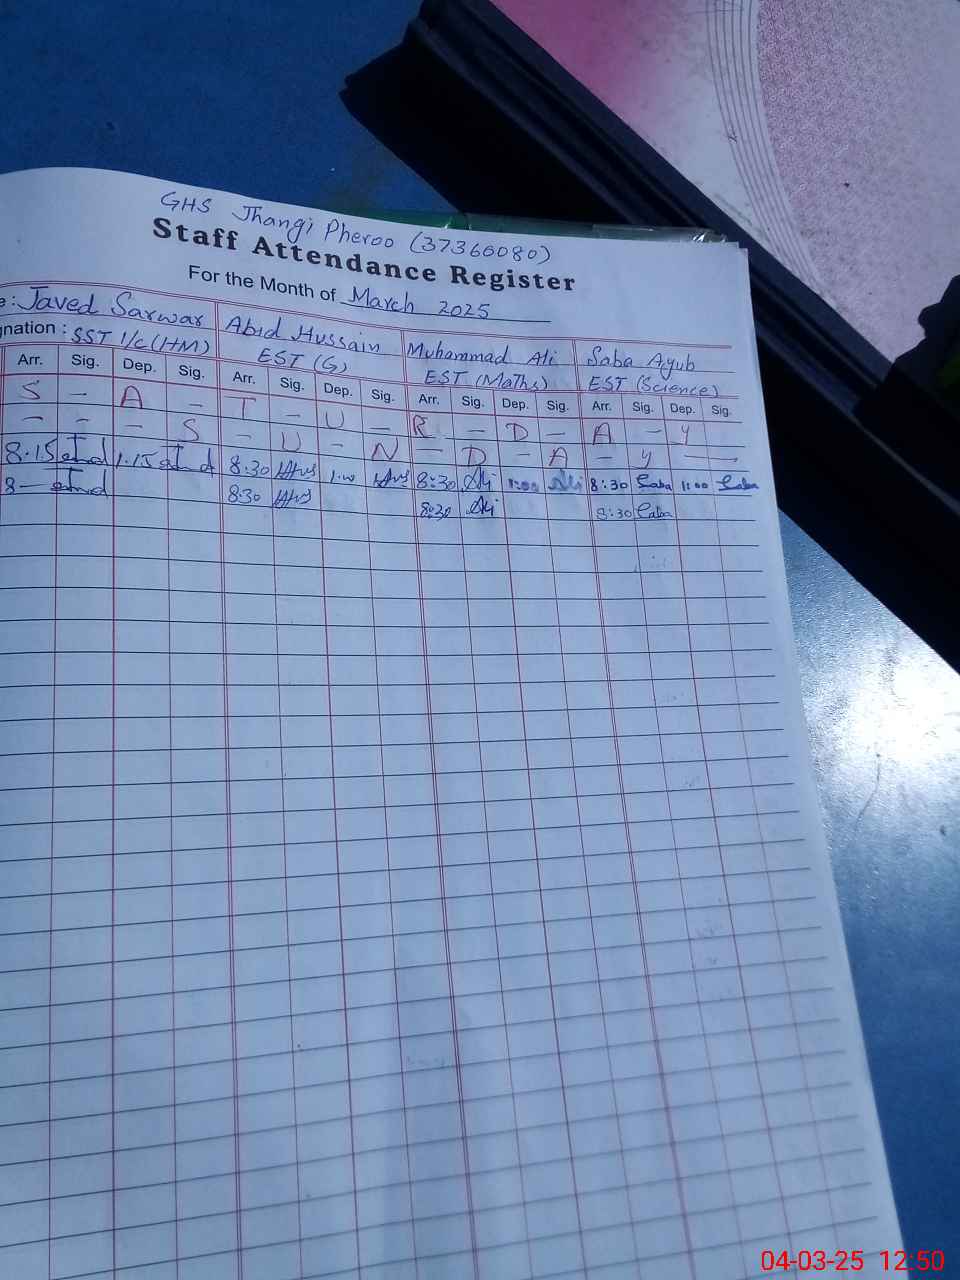 GHS Jhangi Pheroo (37366080)
Staff Attendance Register
For the Month of March 2025
e : Javed Sarwar Abid Hussain Muhammad Ali Saba Ayub
gnation : SST I/c (HM) EST (G) EST (Maths) EST (Science)
Arr. Sig. Dep. Sig. Arr. Sig. Dep. Sig. Arr. Sig. Dep. Sig. Arr. Sig. Dep. Sig.
S - A - T - U - R - D - A - Y
- - - S - U - N - D - A - Y -
8.15 1.15 8.30 1.00 8:30 Ali 1:00 Ali 8:30 Saba 1:00 Saba
8- 8.30 8:30 Ali 8:30 Saba
04-03-25 12:50